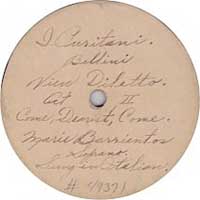 I Puritani.
Bellini
Vien Diletto.
Act II
Come, Dearest, Come.
Marie Barrientos
Soprano.
Sung in Italian.
# 49371